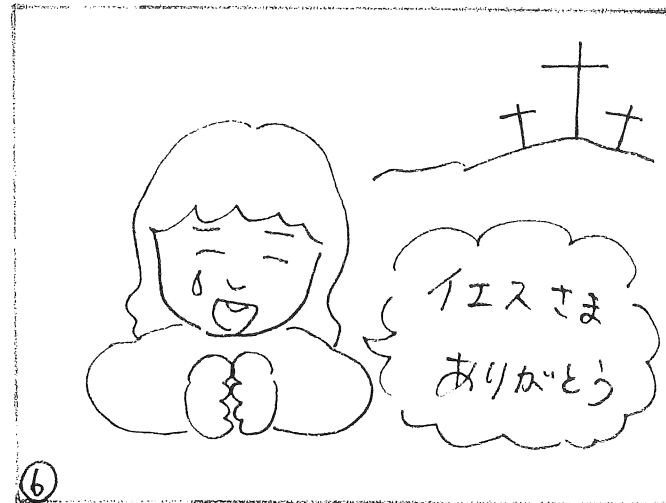 イエスさま
ありがとう
⑥